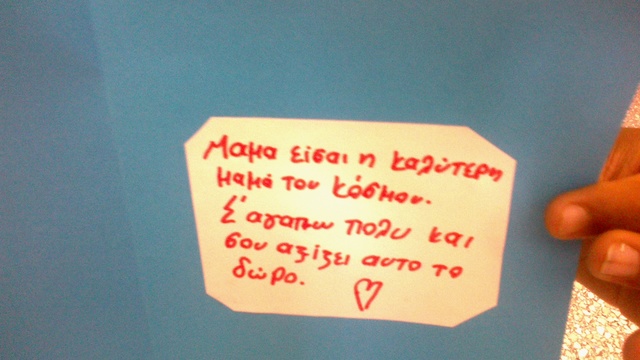 Μαμα είσαι η καλύτερη
μαμά του κόσμου.
Σ'αγαπω πολυ και
σου αξιζει αυτο το
δώρο. ♡